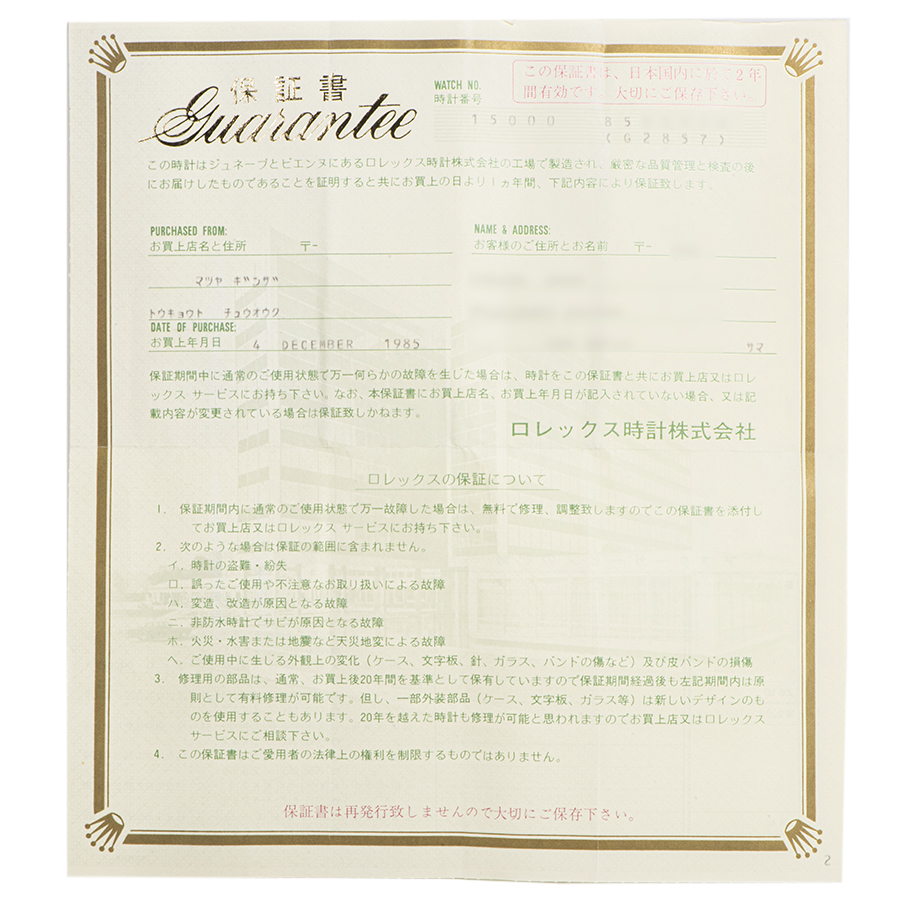 保証書
Guarantee
WATCH NO.
時計番号
この保証書は、日本国内に於て2年
間有効です。大切にご保存下さい。
15000 85
(G2857)
この時計はジュネーブとビエンヌにあるロレックス時計株式会社の工場で製造され、厳密な品質管理と検査の後
にお届けしたものであることを証明すると共にお買上の日より1ヵ年間、下記内容により保証致します。
PURCHASED FROM:
お買上店名と住所 〒-
マツヤ ギンザ
トウキョウト チュウオウク
NAME & ADDRESS:
お客様のご住所とお名前 〒-
サマ
DATE OF PURCHASE:
お買上年月日 4 DECEMBER 1985
保証期間中に通常のご使用状態で万一何らかの故障を生じた場合は、時計をこの保証書と共にお買上店又はロレ
ックス サービスにお持ち下さい。なお、本保証書にお買上店名、お買上年月日が記入されていない場合、又は記
載内容が変更されている場合は保証致しかねます。
ロレックス時計株式会社
ロレックスの保証について
1. 保証期間内に通常のご使用状態で万一故障した場合は、無料で修理、調整致しますのでこの保証書を添付し
てお買上店又はロレックス サービスにお持ち下さい。
2. 次のような場合は保証の範囲に含まれません。
イ. 時計の盗難・紛失
ロ. 誤ったご使用や不注意なお取り扱いによる故障
ハ. 変造、改造が原因となる故障
ニ. 非防水時計でサビが原因となる故障
ホ. 火災・水害または地震など天災地変による故障
ヘ. ご使用中に生じる外観上の変化（ケース、文字板、針、ガラス、バンドの傷など）及び皮バンドの損傷
3. 修理用の部品は、通常、お買上後20年間を基準として保有していますので保証期間経過後も左記期間内は原
則として有料修理が可能です。但し、一部外装部品（ケース、文字板、ガラス等）は新しいデザインのも
のを使用することもあります。20年を越えた時計も修理が可能と思われますのでお買上店又はロレックス
サービスにご相談下さい。
4. この保証書はご愛用者の法律上の権利を制限するものではありません。
保証書は再発行致しませんので大切にご保存下さい。
2